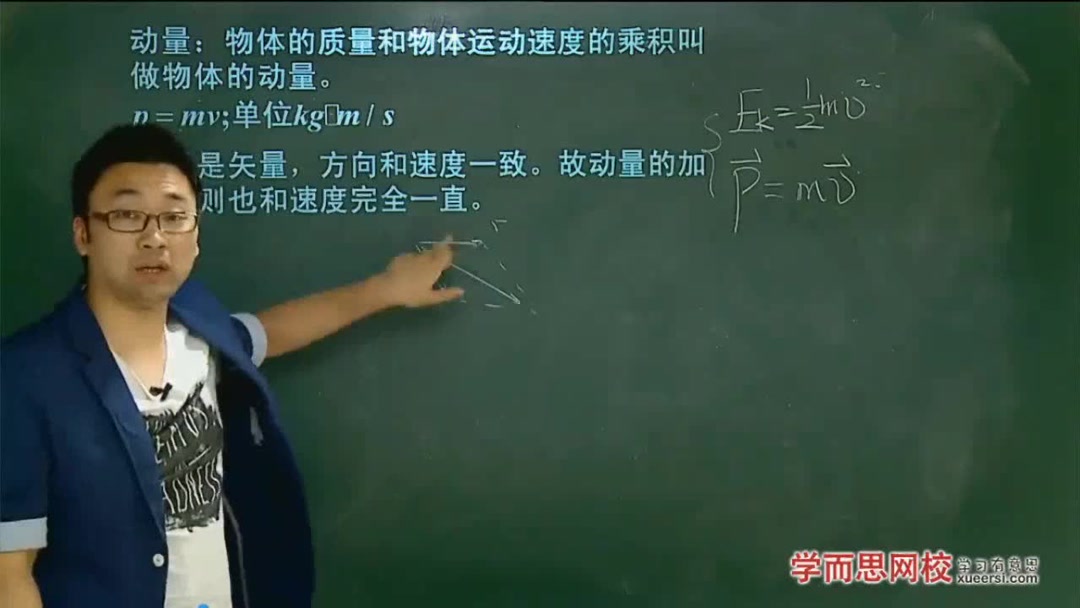 动量：物体的质量和物体运动速度的乘积叫
做物体的动量。
p = mv;单位kg□m / s
是矢量，方向和速度一致。故动量的加
则也和速度完全一直。
Ek=½mv²
p⃗=mv⃗
学而思网校
学习有意思
xueersi.com